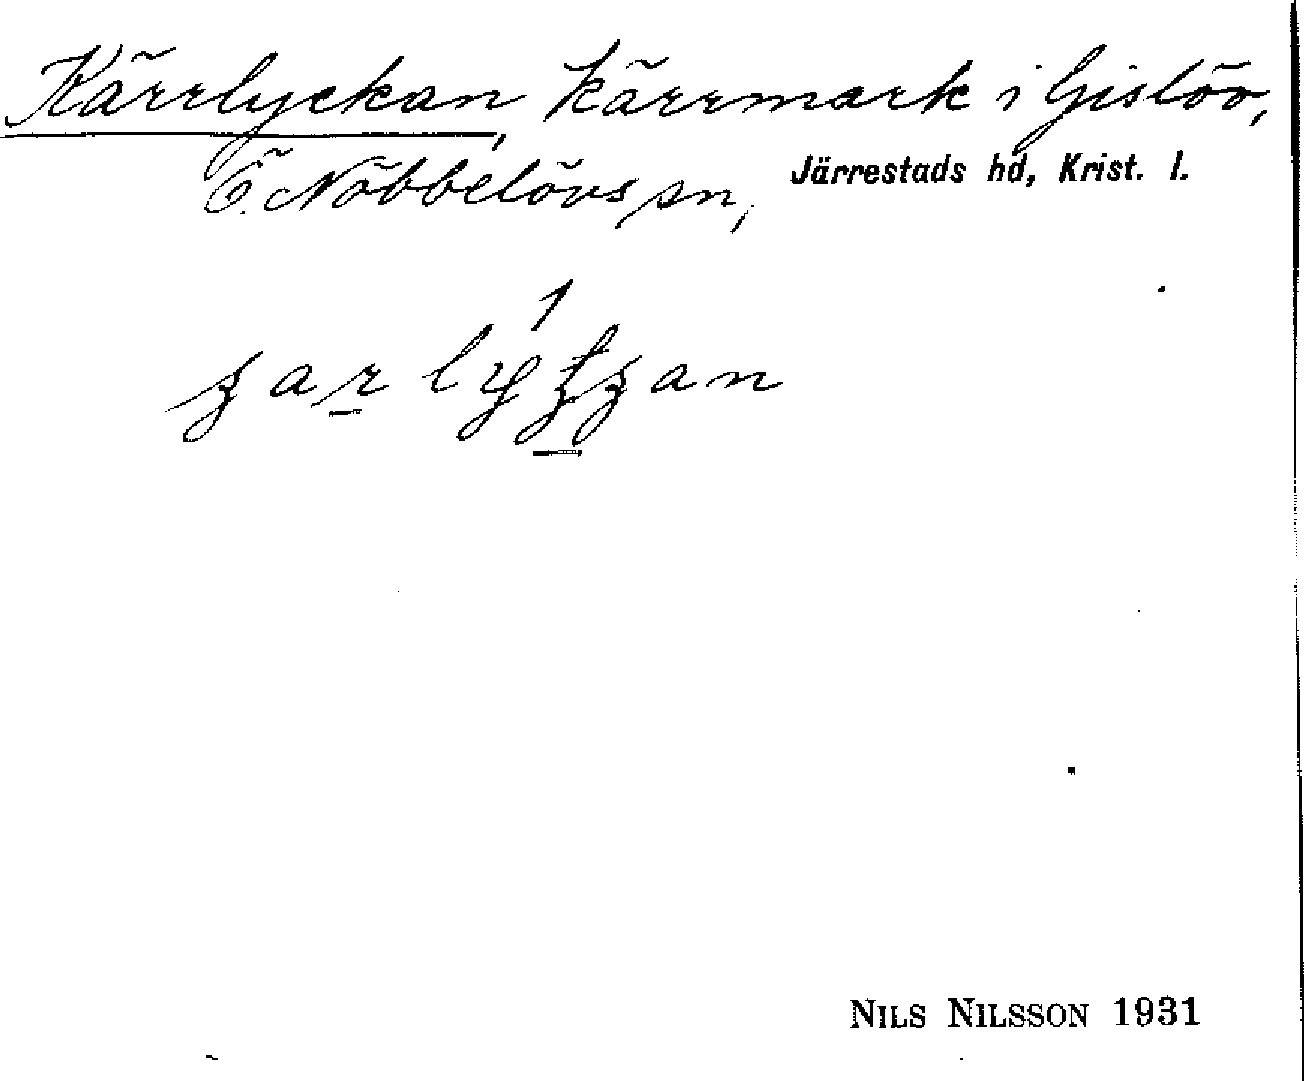 Kärrlyckan, kärrmark i Gislöv,
Ö. Nöbbelövs sn, Järrestads hd, Krist. l.
NILS NILSSON 1931